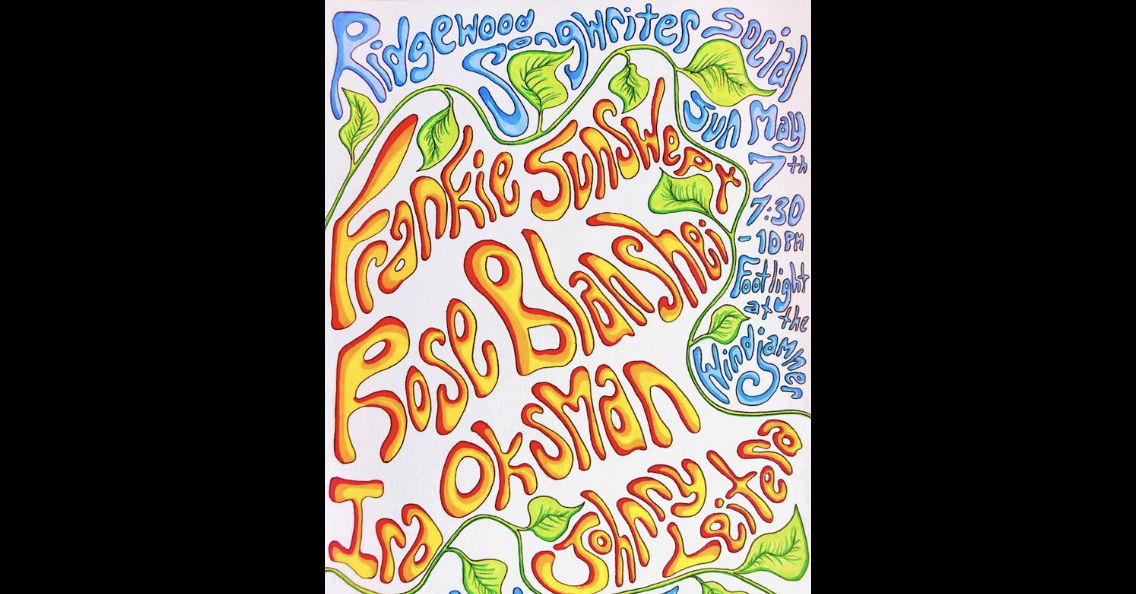 Ridgewood Songwriter Social
Sun May
7th
7:30
-10PM
Footlight
at the
Windjammer
Frankie Sunswept
Rose Blanshei
Ira Oksman
Johnny Leitera